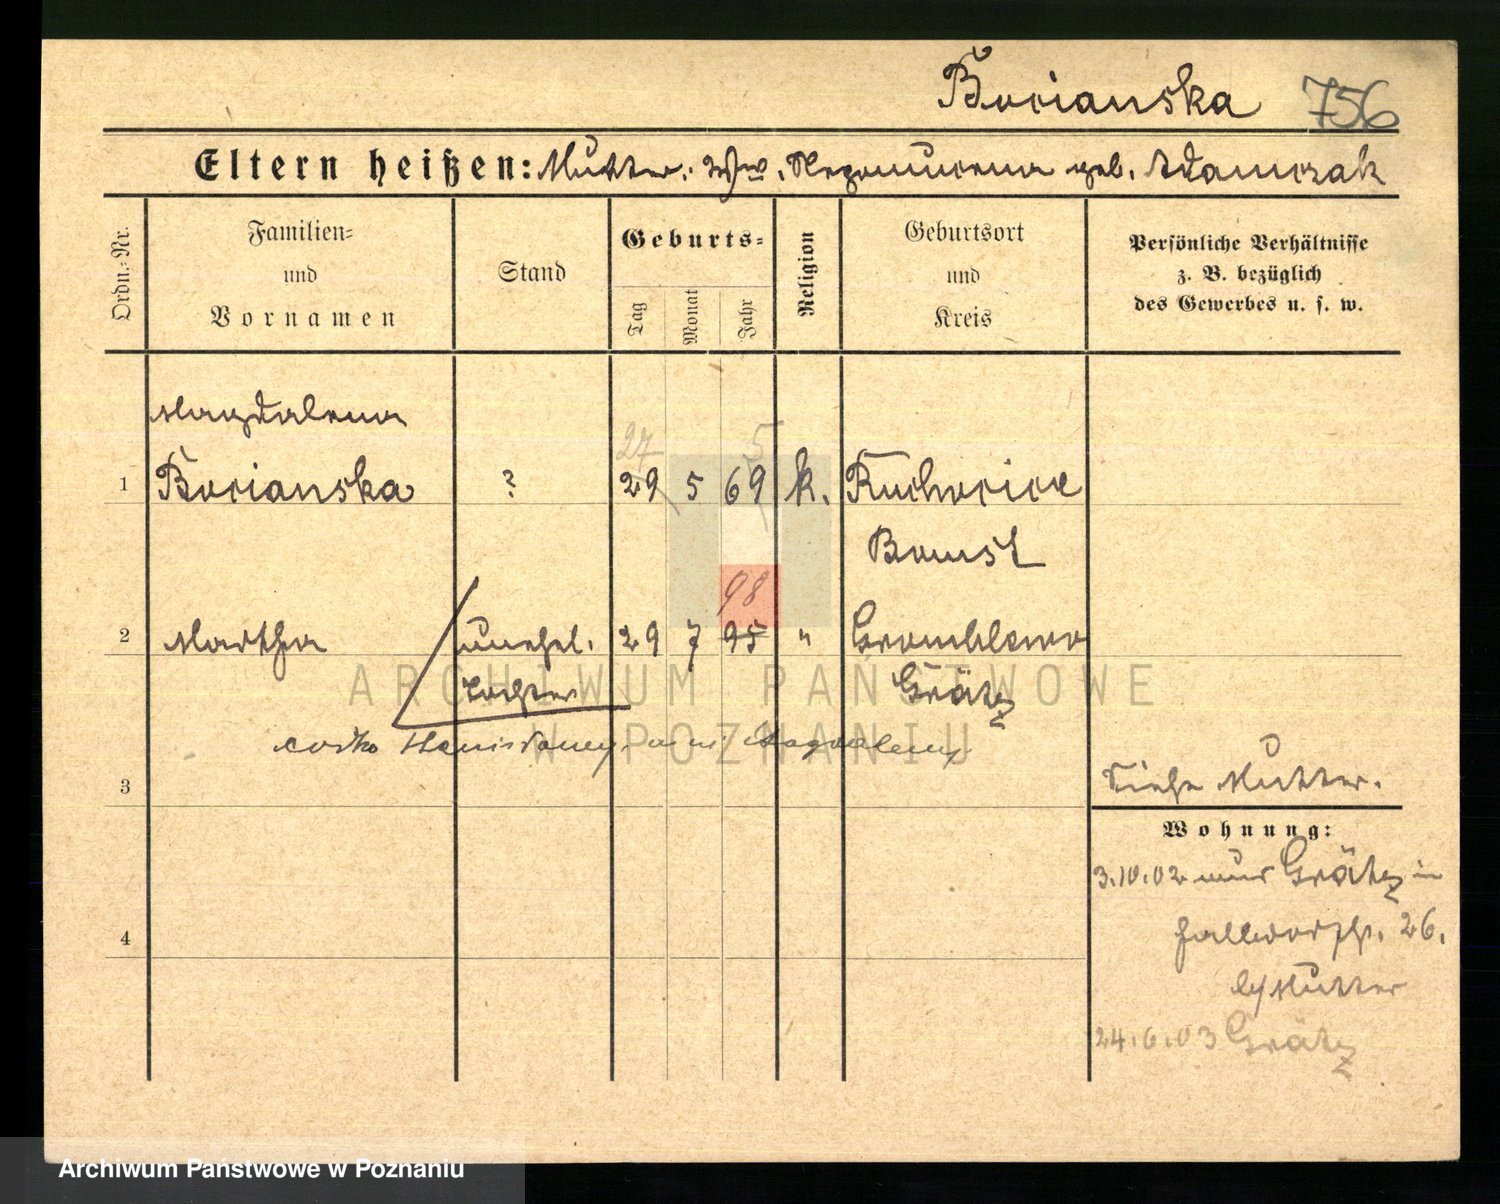 Bocianska 756
Eltern heißen: Mutter: Ww. Nepomucena geb. Adamczak
Ordn.-Nr.
Familien-
und
Vornamen
Stand
Geburts-
Tag
Monat
Jahr
Religion
Geburtsort
und
Kreis
Persönliche Verhältnisse
z. B. bezüglich
des Gewerbes u. s. w.
Magdalena
27 5
1 Bocianska ? 29 5 69 k. Ruchocice
Bomst
98
2 Martha unehel. 29 7 95 " Gromblewo
Tochter Grätz
córka Stanisławy, a ni Magdaleny.
3 Siehe Mutter.
Wohnung:
3.10.02 aus Grätz in
26.
4
b/Mutter
24.6.03 Grätz
ARCHIWUM PAŃSTWOWE
W POZNANIU
Archiwum Państwowe w Poznaniu